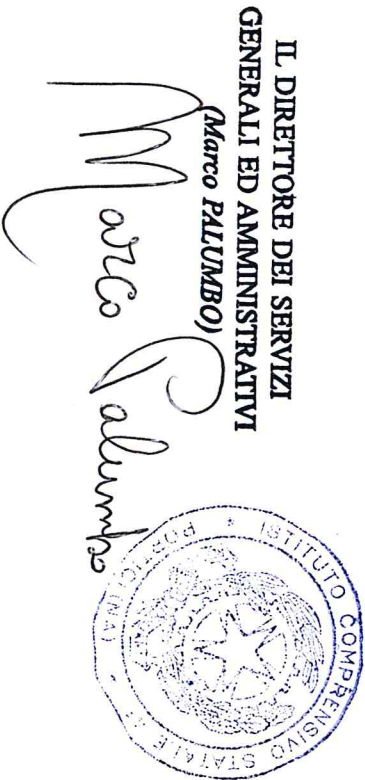 IL DIRETTORE DEI SERVIZI
GENERALI ED AMMINISTRATIVI
(Marco PALUMBO)
Marco Palumbo
ISTITUTO COMPRENSIVO STATALE
PORTICI (NA)